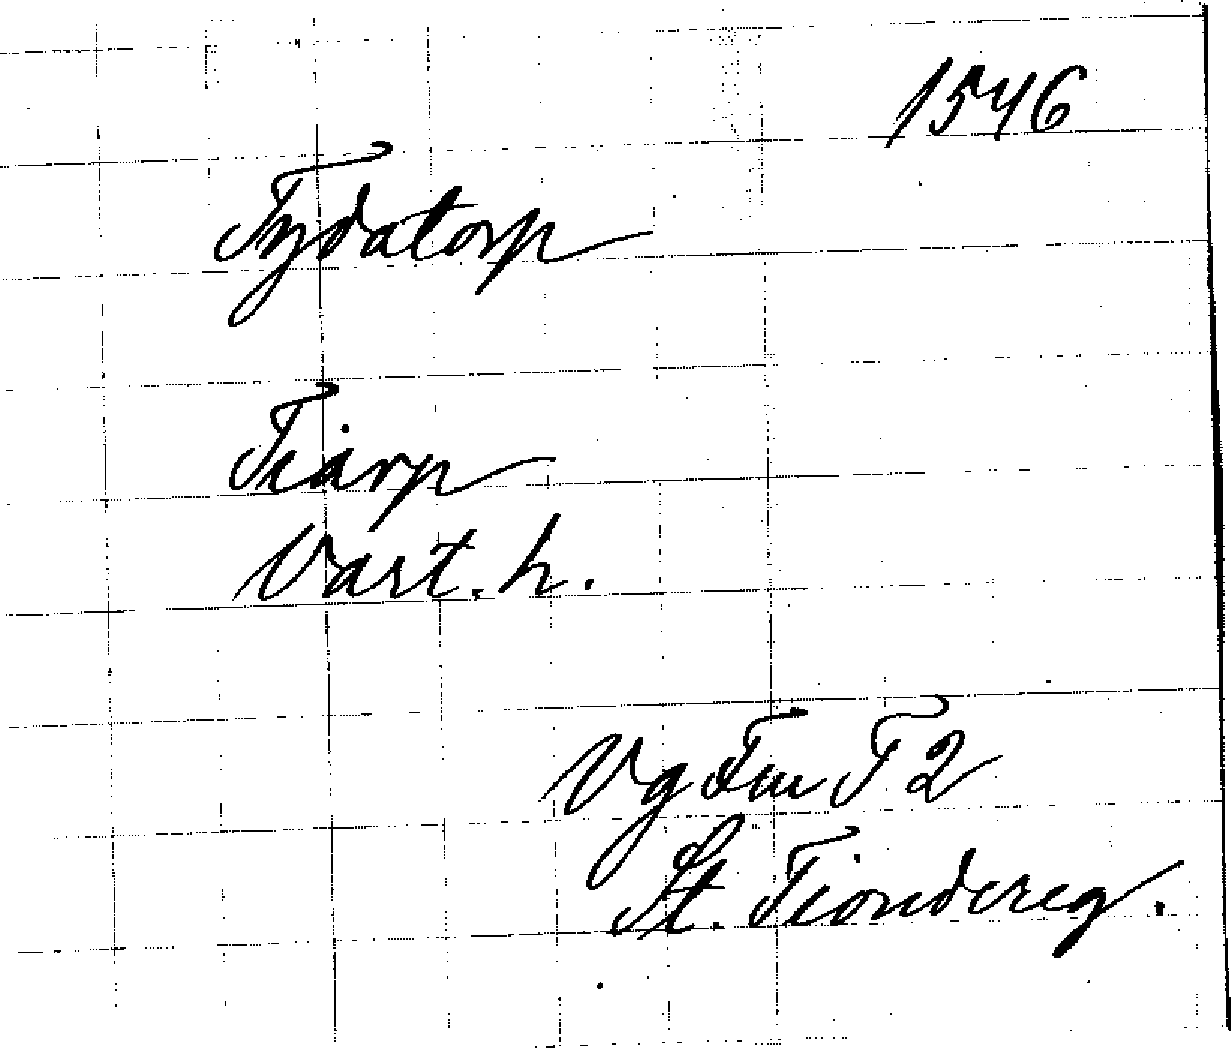 1546
Tydatorp
Tiarp
Vart. h.
Vg Fm F 2
St. Tiondereg.